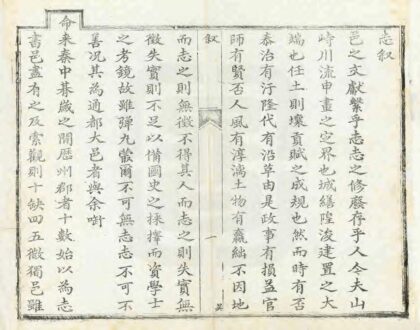 志叙
邑之文獻繫乎志志之修廢存乎人今夫山
峙川流申畫之定界也城繕隍浚建置之大
端也任土則壤貢賦之成規也然而時有否
泰治有汙隆代有沿革由是政事有損益官
師有賢否人風有淳漓土物有羸絀不因地
叙
一
而志之則無徵不得其人而志之則失實無
徵失實則不足以備國史之採擇而資學士
之考鏡故雖彈丸蕞爾不可無志志不可不
善况其為通都大邑者與余啣
命来秦中朞歲之間歷州郡者十數始以為志
書邑盡有之及索觀則十缺四五徵獨邑雖